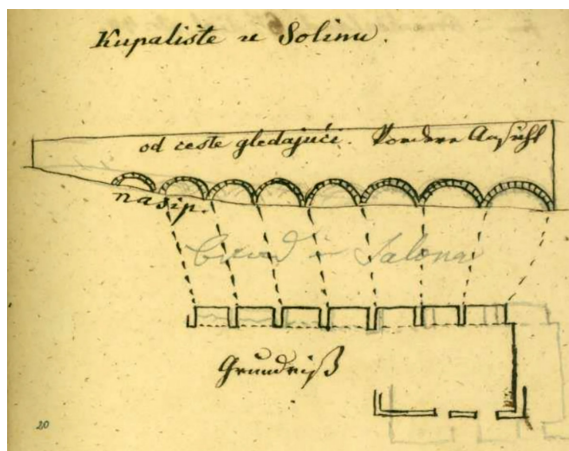 Kupalište u Solinu.
od ceste gledajući. Vordere Ansicht
nasip.
Salona
Grundriß
20